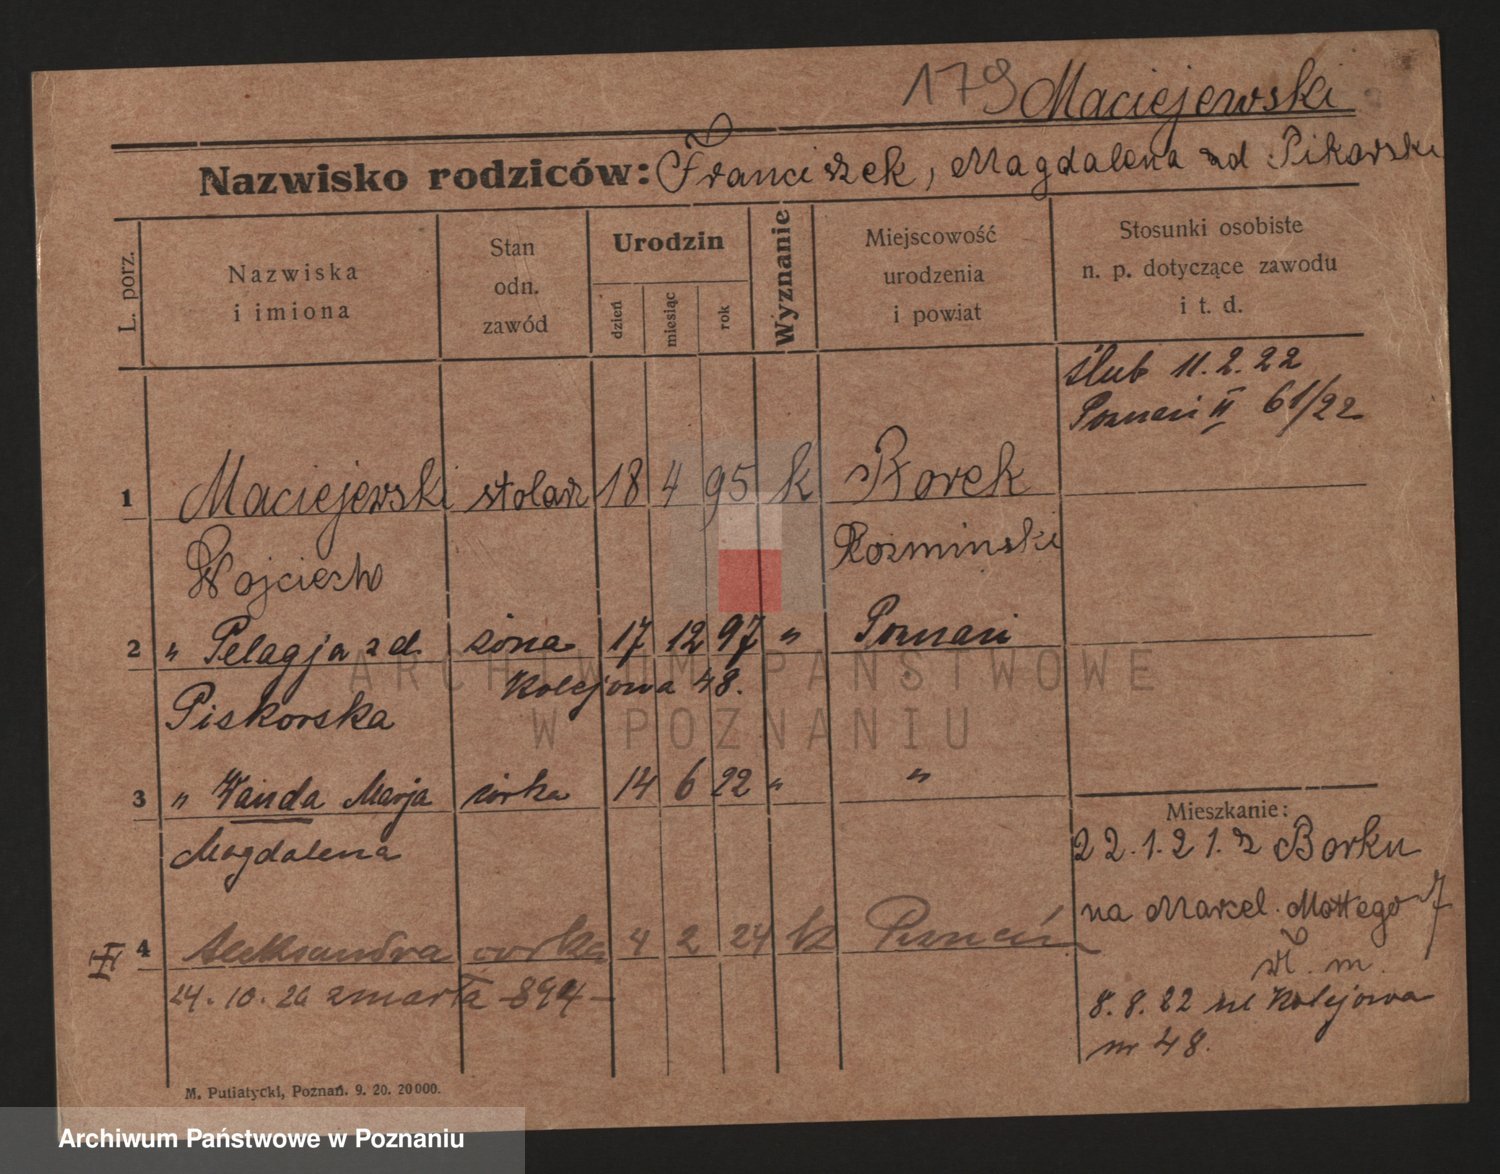 179 Maciejewski
Nazwisko rodziców: Franciszek, Magdalena zd Pikorski
L. porz.
Nazwiska
i imiona
Stan
odn.
zawód
Urodzin
dzień
miesiąc
rok
Wyznanie
Miejscowość
urodzenia
i powiat
Stosunki osobiste
n. p. dotyczące zawodu
i t. d.
Ślub 11.2.22
Poznań II 61/22
1 Maciejewski stolarz 18 4 95 k Borek
Wojciech Koźmiński
2 " Pelagja zd. żona 17 12 97 " Poznań
Piskorska Kolejowa 48.
3 " Wanda Marja córka 14 6 22 " "
Magdalena
Mieszkanie:
22.1.21. z Borku
na Marcel. Mottego 7
4 Aleksandra córka 4 2 24 k Poznań
24.10.26 zmarła 894
8.8.22 ul Kolejowa
nr 48.
M. Putiatycki, Poznań. 9. 20. 20000.
ARCHIWUM PAŃSTWOWE
W POZNANIU
Archiwum Państwowe w Poznaniu